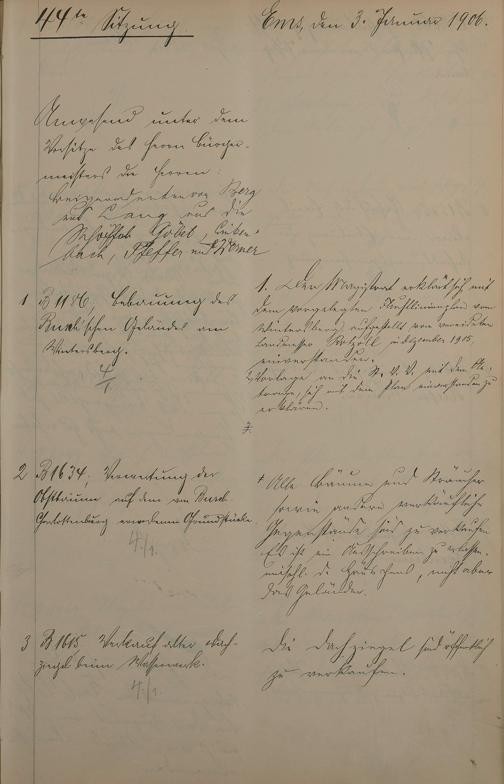 44te Sitzung
Ems, den 3. Januar 1906.
Anwesend unter dem
Vorsitze des Herrn Bürger-
meisters die Herren:
Beigeordneten von Berg
und Lang und die
Schöffen Göbel, Linken-
bach, Pfeffer und Römer
1 B 1186, Bebauung des
Rusch'schen Geländes am
Wintersberg.
4/1
1. Der Magistrat erklärt sich mit
dem vorgelegten Fluchtlinienplan vom
Wintersberg, aufgestellt vom vereideten
Landmesser im Dezember 1905,
einverstanden.
2, Vorlage an die St. V. V. mit dem An-
trage, sich mit dem Plan einverstanden zu
erklären.
2 B 1634, Verwertung der
Obstbäume auf dem von Rusch
erworbenen Grundstücke
4./1.
Alle Bäume und Sträucher
sowie andere verkäufliche
Gegenstände sind zu verkaufen.
Es ist ein Ausschreiben zu erlassen.
des Häuschens, nicht aber
das Geländer.
3 B 1615, Verkauf alter Dach-
ziegel beim Wasserwerk.
4./1.
Die Dachziegel sind öffentlich
zu verkaufen.